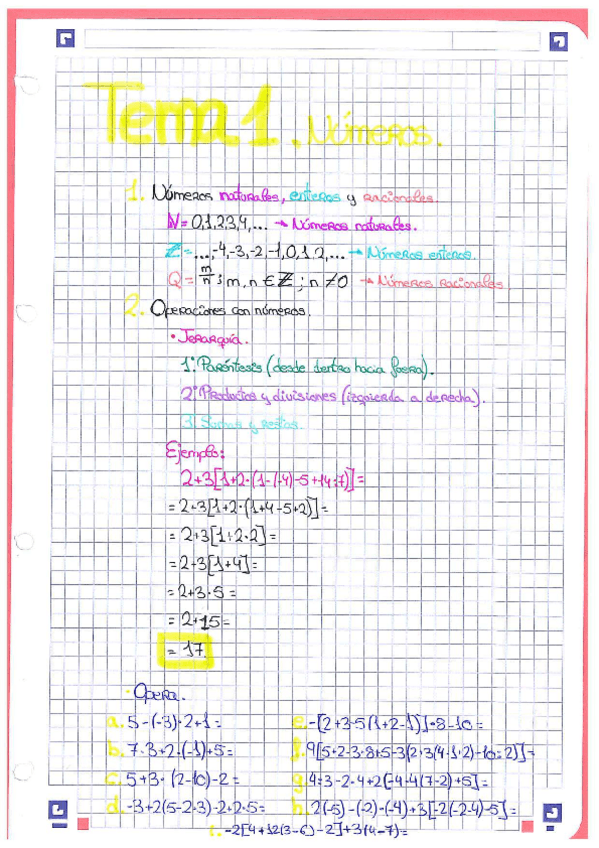 Tema 1. Números.
1. Números naturales, enteros y racionales.
N = 0,1,2,3,4,... → Números naturales.
Z = ...,-4,-3,-2,-1,0,1,2,... → Números enteros.
Q = m/n ; m,n ∈ Z ; n ≠ 0 → Números racionales
2. Operaciones con números.
• Jerarquía.
1º Paréntesis (desde dentro hacia fuera).
2º Productos y divisiones (izquierda a derecha).
3. Sumas y restas.
Ejemplo:
2+3[1+2·(1-(-4)-5+14:7)]=
= 2+3[1+2·(1+4-5+2)]=
= 2+3[1+2·2]=
= 2+3[1+4]=
= 2+3·5=
= 2+15=
= 17.
· Opera.
a. 5-(-3)·2+1=
b. 7·3+2·(-1)+5=
c. 5+3·(2-10)-2=
d. -3+2(5-2·3)-2·2·5=
e. -[2+3·5(1+2-1)]·8-10=
f. 9[5+2-3·8+5-3(2·3(4·1·2)-10:2)]=
g. 4:3-2·4+2[-4-4(7-2)+5]=
h. 2(-5)-(-2)·(-4)+3[-2(-2-4)-5]=
i. -2[4+12(3-6)-2]+3(4-7)=